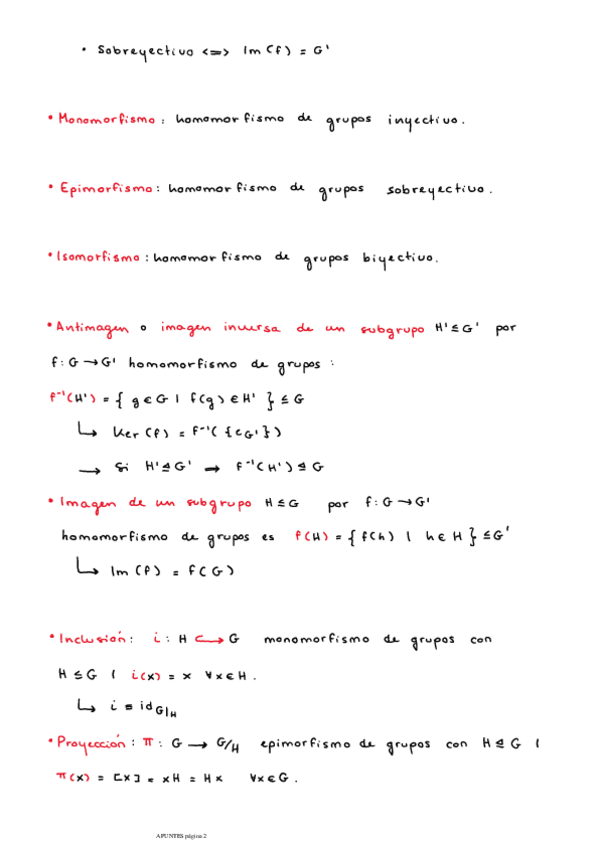 • Sobreyectivo <=> Im(f) = G'
• Monomorfismo: homomorfismo de grupos inyectivo.
• Epimorfismo: homomorfismo de grupos sobreyectivo.
• Isomorfismo: homomorfismo de grupos biyectivo.
• Antimagen o imagen inversa de un subgrupo H' ≤ G' por
f: G → G' homomorfismo de grupos:
f⁻¹(H') = { g ∈ G | f(g) ∈ H' } ≤ G
↳ Ker(f) = f⁻¹({e_G'})
→ Si H' ⊴ G' → f⁻¹(H') ⊴ G
• Imagen de un subgrupo H ≤ G por f: G → G'
homomorfismo de grupos es f(H) = { f(h) | h ∈ H } ≤ G'
↳ Im(f) = f(G)
• Inclusión: i: H ↪ G monomorfismo de grupos con
H ≤ G | i(x) = x ∀x ∈ H.
↳ i ≡ id_G|H
• Proyección: π: G → G/H epimorfismo de grupos con H ⊴ G |
π(x) = [x] = xH = Hx ∀x ∈ G.
APUNTES página 2